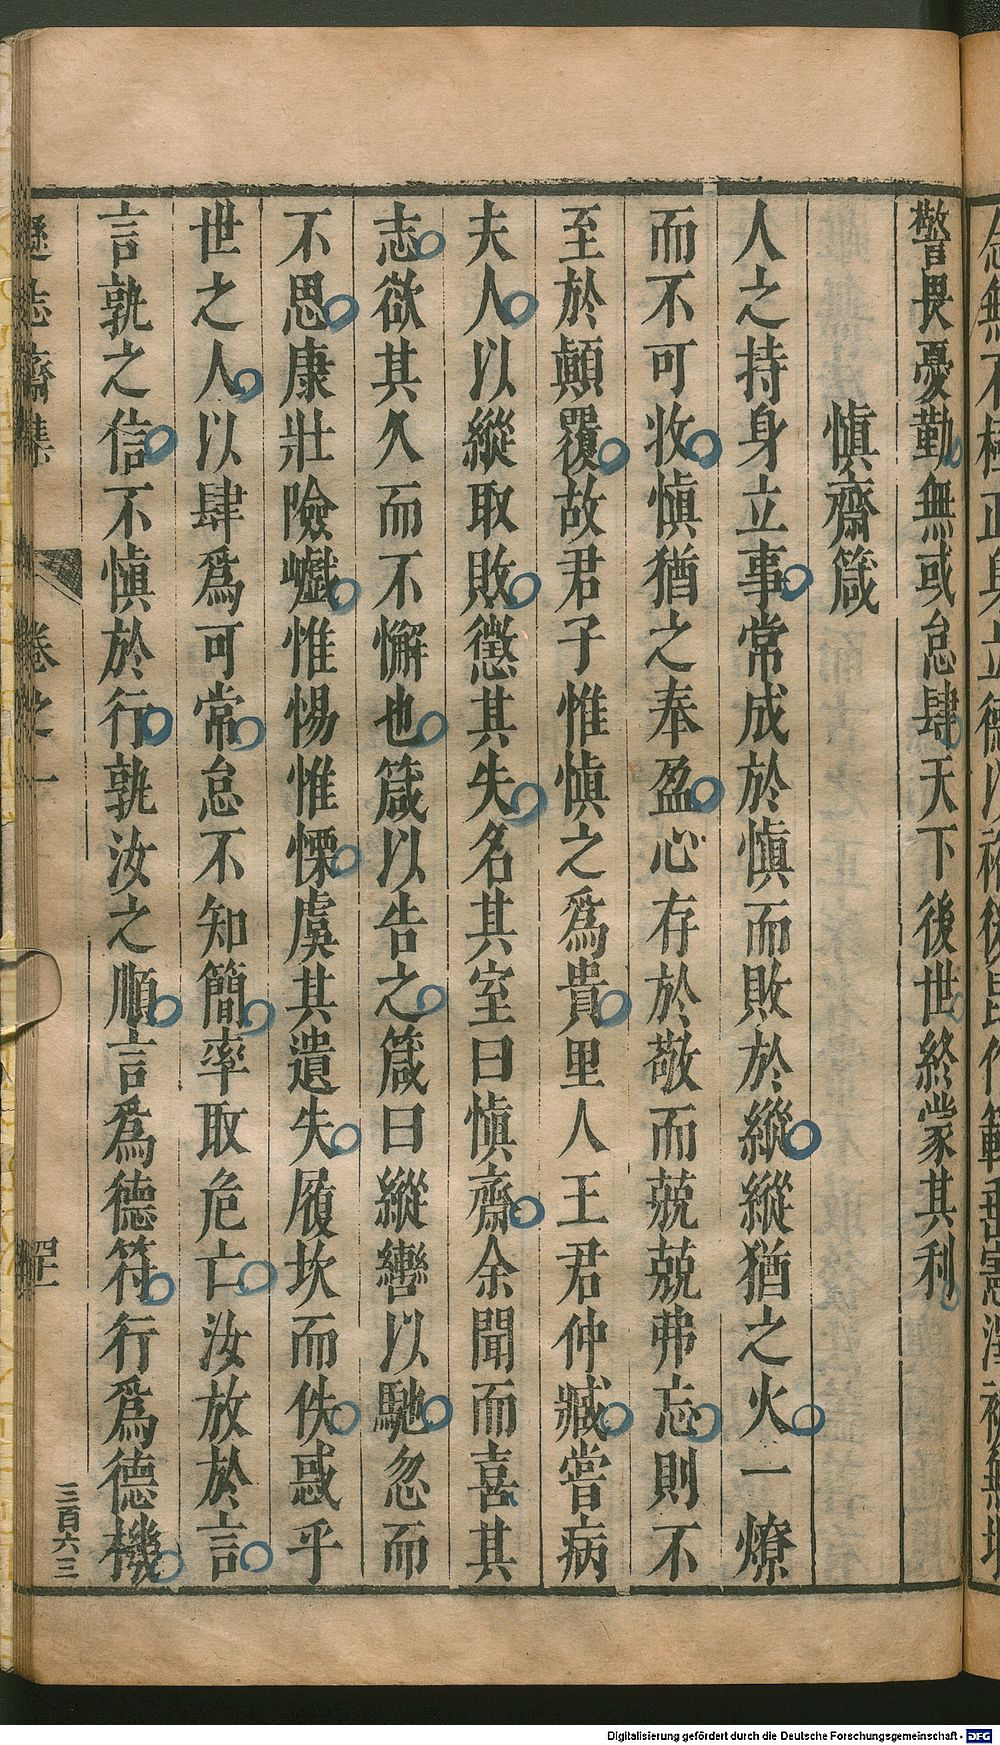 警畏憂勤無或怠肆天下後世終蒙其利
愼齋箴
人之持身立事常成於愼而敗於縱縱猶之火一燎
而不可收愼猶之奉盈心存於敬而兢兢弗忘則不
至於顚覆故君子惟愼之爲貴里人王君仲臧嘗病
夫人以縱取敗懲其失名其室曰愼齋余聞而喜其
志欲其久而不懈也箴以告之箴曰縱轡以馳忽而
不思康壯險巇惟惕惟慄虞其遺失履坎而佚惑乎
世之人以肆爲可常怠不知簡率取危亡汝放於言
言孰之信不愼於行孰汝之順言爲德符行爲德機
遜志齋集
卷之一
三百六三
Digitalisierung gefördert durch die Deutsche Forschungsgemeinschaft - DFG